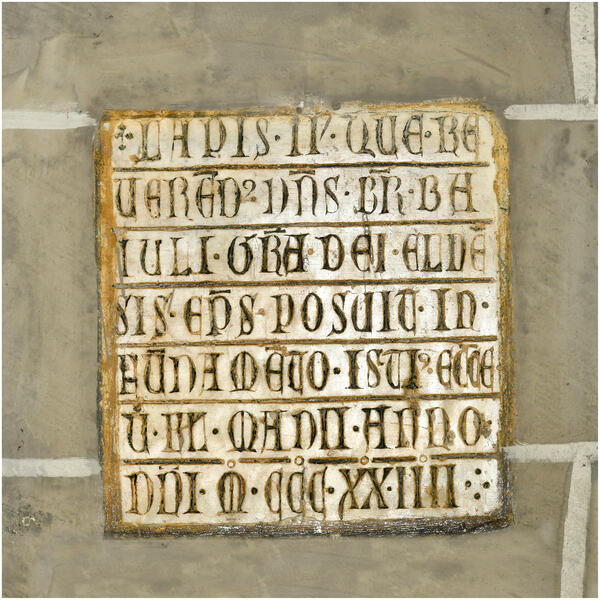 ·LAPIS·II·QUE·RE
VERĒD⁹ DN̄S·BR̄·BA
IULI·GR̄A DEI·ELNĒ
SIS·EP̄S POSUIT·IN·
FŪDAMĒTO·ISTI⁹·ECCE
V̇·KL·MADII·ANNO·
DN̄I·M·CCC·XX·IIII